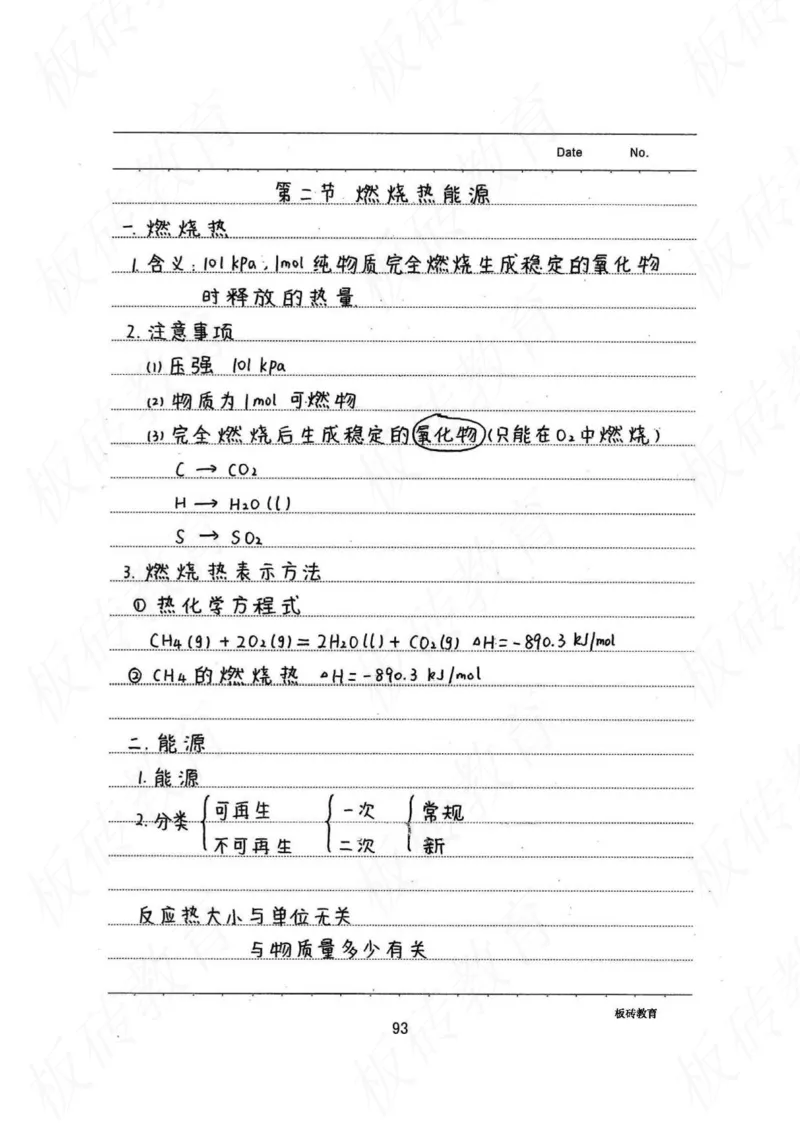 Date No.
第二节 燃烧热能源
一.燃烧热
1.含义:101kPa,1mol纯物质完全燃烧生成稳定的氧化物
时释放的热量
2.注意事项
(1)压强 101 kPa
(2)物质为1mol可燃物
(3)完全燃烧后生成稳定的氧化物(只能在O₂中燃烧)
C → CO₂
H → H₂O(l)
S → SO₂
3.燃烧热表示方法
① 热化学方程式
CH₄(g)+2O₂(g)=2H₂O(l)+CO₂(g) △H=-890.3 kJ/mol
② CH₄的燃烧热 △H=-890.3 kJ/mol
二.能源
1.能源
2.分类 { 可再生 { 一次 { 常规
不可再生 二次 新
反应热大小与单位无关
与物质量多少有关
板砖教育
93